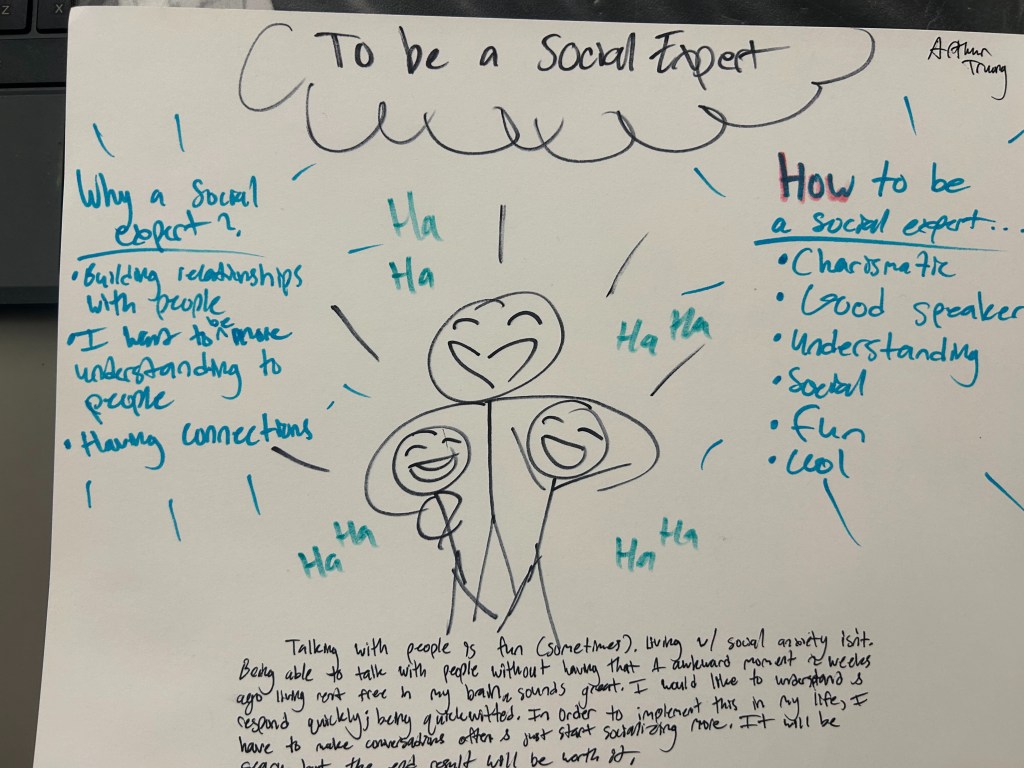 To be a Social Expert
Arthur
Truong
Why a Social
expert?
• Building relationships
with people
• I want to be more
understanding to
people
• Having connections
Ha
Ha
Ha Ha
Ha Ha
Ha Ha
HOW to be
a social expert...
• Charismatic
• Good speaker
• Understanding
• Social
• Fun
• Cool
Talking with people is fun (sometimes). Living w/ social anxiety isnt.
Being able to talk with people without having that 1 awkward moment 2 weeks
ago living rent free in my brain, sounds great. I would like to understand &
respond quickly; being quickwitted. In order to implement this in my life, I
have to make conversations often & just start socializing more. It will be
scary but the end result will be worth it.